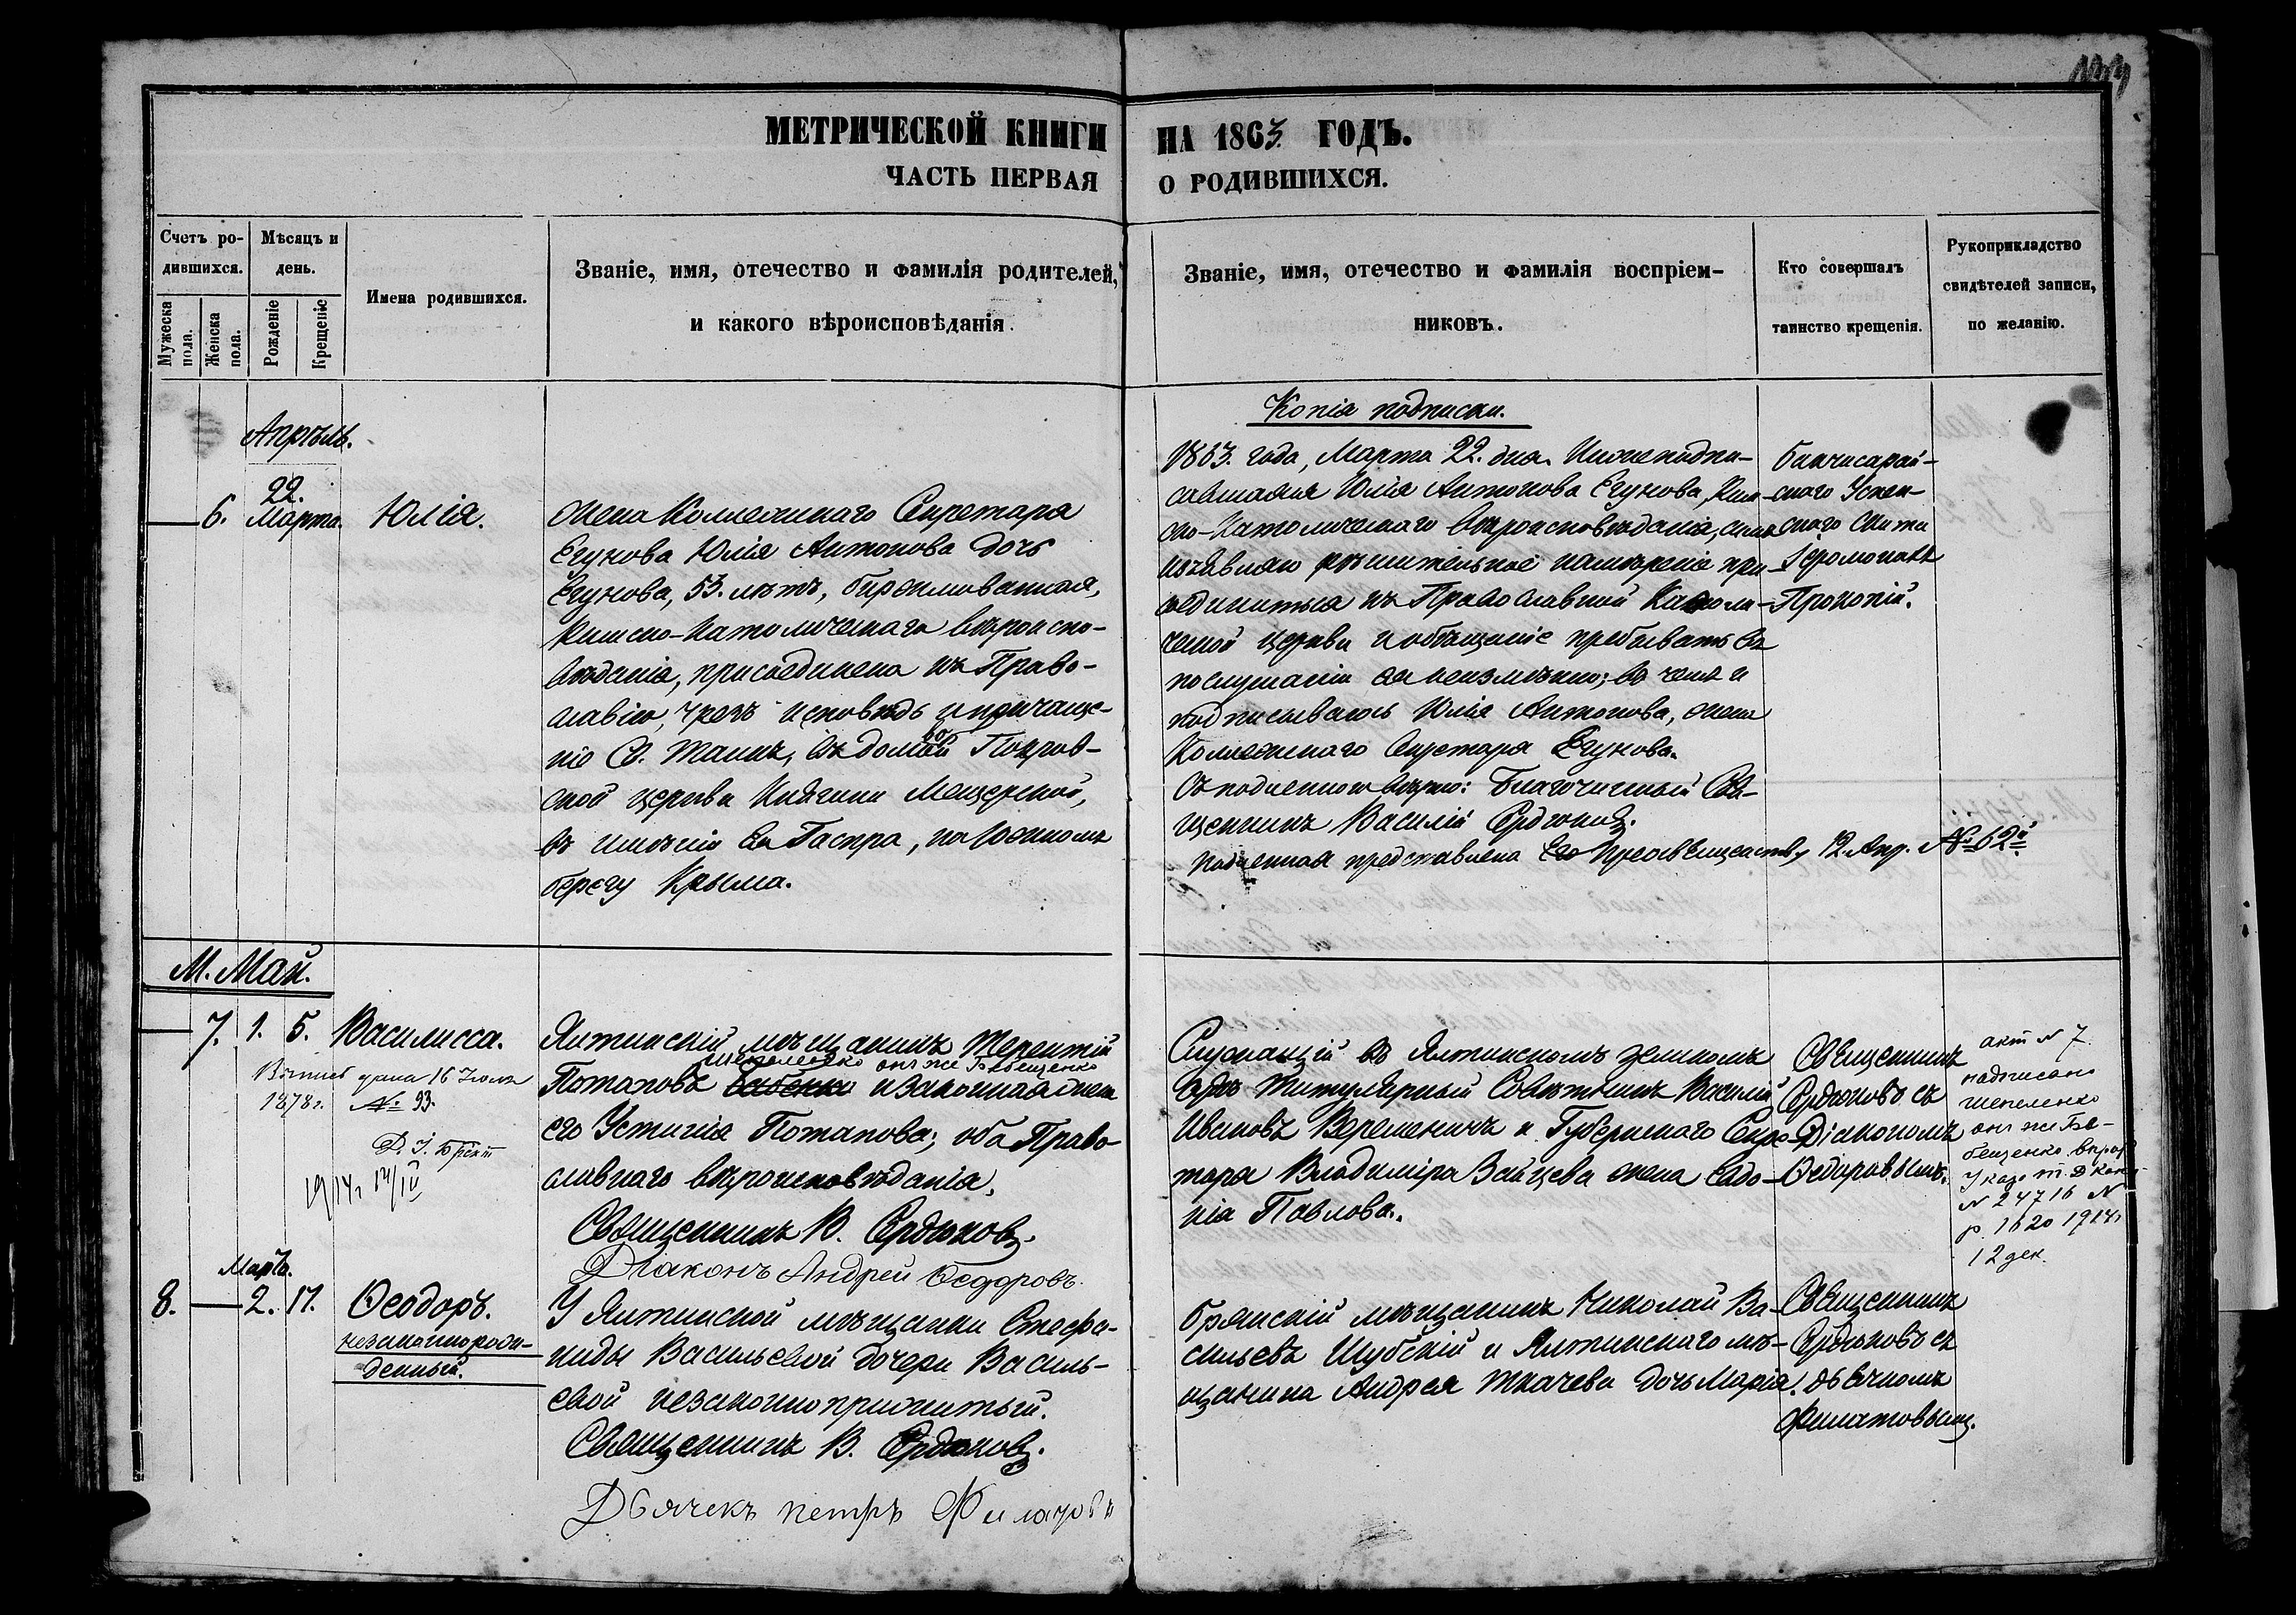 МЕТРИЧЕСКОЙ КНИГИ НА 1863. ГОДЪ.
ЧАСТЬ ПЕРВАЯ О РОДИВШИХСЯ.
Счетъ ро-
дившихся.
Мужеска
пола.
Женска
пола.
Мѣсяцъ и
день.
Рожденіе
Крещеніе
Имена родившихся.
Званіе, имя, отечество и фамилія родителей,
и какого вѣроисповѣданія.
Званіе, имя, отечество и фамилія воспріем-
никовъ.
Кто совершалъ
таинство крещенія.
Рукоприкладство
свидѣтелей записи,
по желанію.
Апрѣль.
6.
22.
Марта.
Юлія.
Жена Коллежскаго Секретаря
Егунова Юлія Антонова дочь
Егунова, 53. лѣтъ, бирсимованная,
Римско-Католическаго вѣроиспо-
вѣданія, присоединена къ Право-
славію, чрезъ исповѣдь и причаще-
ніе Св. Таинъ, въ домовой Покров-
ской церкви Княгини Мещерской,
въ имѣніи ея Гаспра, на Южномъ
берегу Крыма.
Копія подписки.
1863. года, Марта 22. дня. Нижеподпи-
савшаяся Юлія Антонова Егунова, Рим-
ско-Католическаго вѣроисповѣданія, симъ
изъявляю рѣшительное намѣреніе при-
соединиться къ Православной Католи-
ческой церкви и обѣщаніе пребывать въ
послушаніи ея неизмѣнно; въ чемъ и
подписываюсь Юлія Антонова, жена
Коллежскаго Секретаря Егунова.
Съ подлинною вѣрно: Благочинный Свя-
щенникъ Василій Сердюковъ.
Подлинная представлена Его Преосвященству 12. Апр. № 62й
Бахчисарай-
скаго Успен-
скаго скита
Іеромонахъ
Прокопій.
М. Май.
7. 1. 5. Василисса.
Выпись дана 16 Іюля
1878 г. № 93.
1914 г 14/IV
Ялтинскій мѣщанинъ Терентій
Шепеленко онъ же Бабещенко
Потаповъ и законная жена
его Устинія Потапова; оба Право-
славнаго вѣроисповѣданія.
Священникъ В. Сердюковъ.
Діаконъ Андрей Ѳеодоровъ.
Служащій въ Ялтинскомъ земскомъ
судѣ Титулярный Совѣтникъ Василій
Ивановъ Веременичъ и Губернскаго Секре-
таря Владиміра Зайцева жена Евдо-
кія Павлова.
Священникъ
Сердюковъ съ
Діакономъ
Ѳедоровымъ.
акт N 7.
надписано
Шепеленко
он же Ба-
бещенко
Указ Т. Д. Конс
N 24716 N
р. 1620 1914 г
12 дек.
Мартъ.
8. 2. 17. Ѳеодоръ.
незаконнорож-
денный.
У Ялтинской мѣщанки Стефа-
ниды Васильевой дочери Василь-
евой незаконноприжитый.
Священникъ В. Сердюковъ.
Дьячекъ петръ Филатовъ
Брянскій мѣщанинъ Николай Ва-
сильевъ Шубскій и Ялтинскаго мѣ-
щанина Андрея Ткачева дочь Марія.
Священникъ
Сердюковъ съ
дьячкомъ
Филатовымъ.